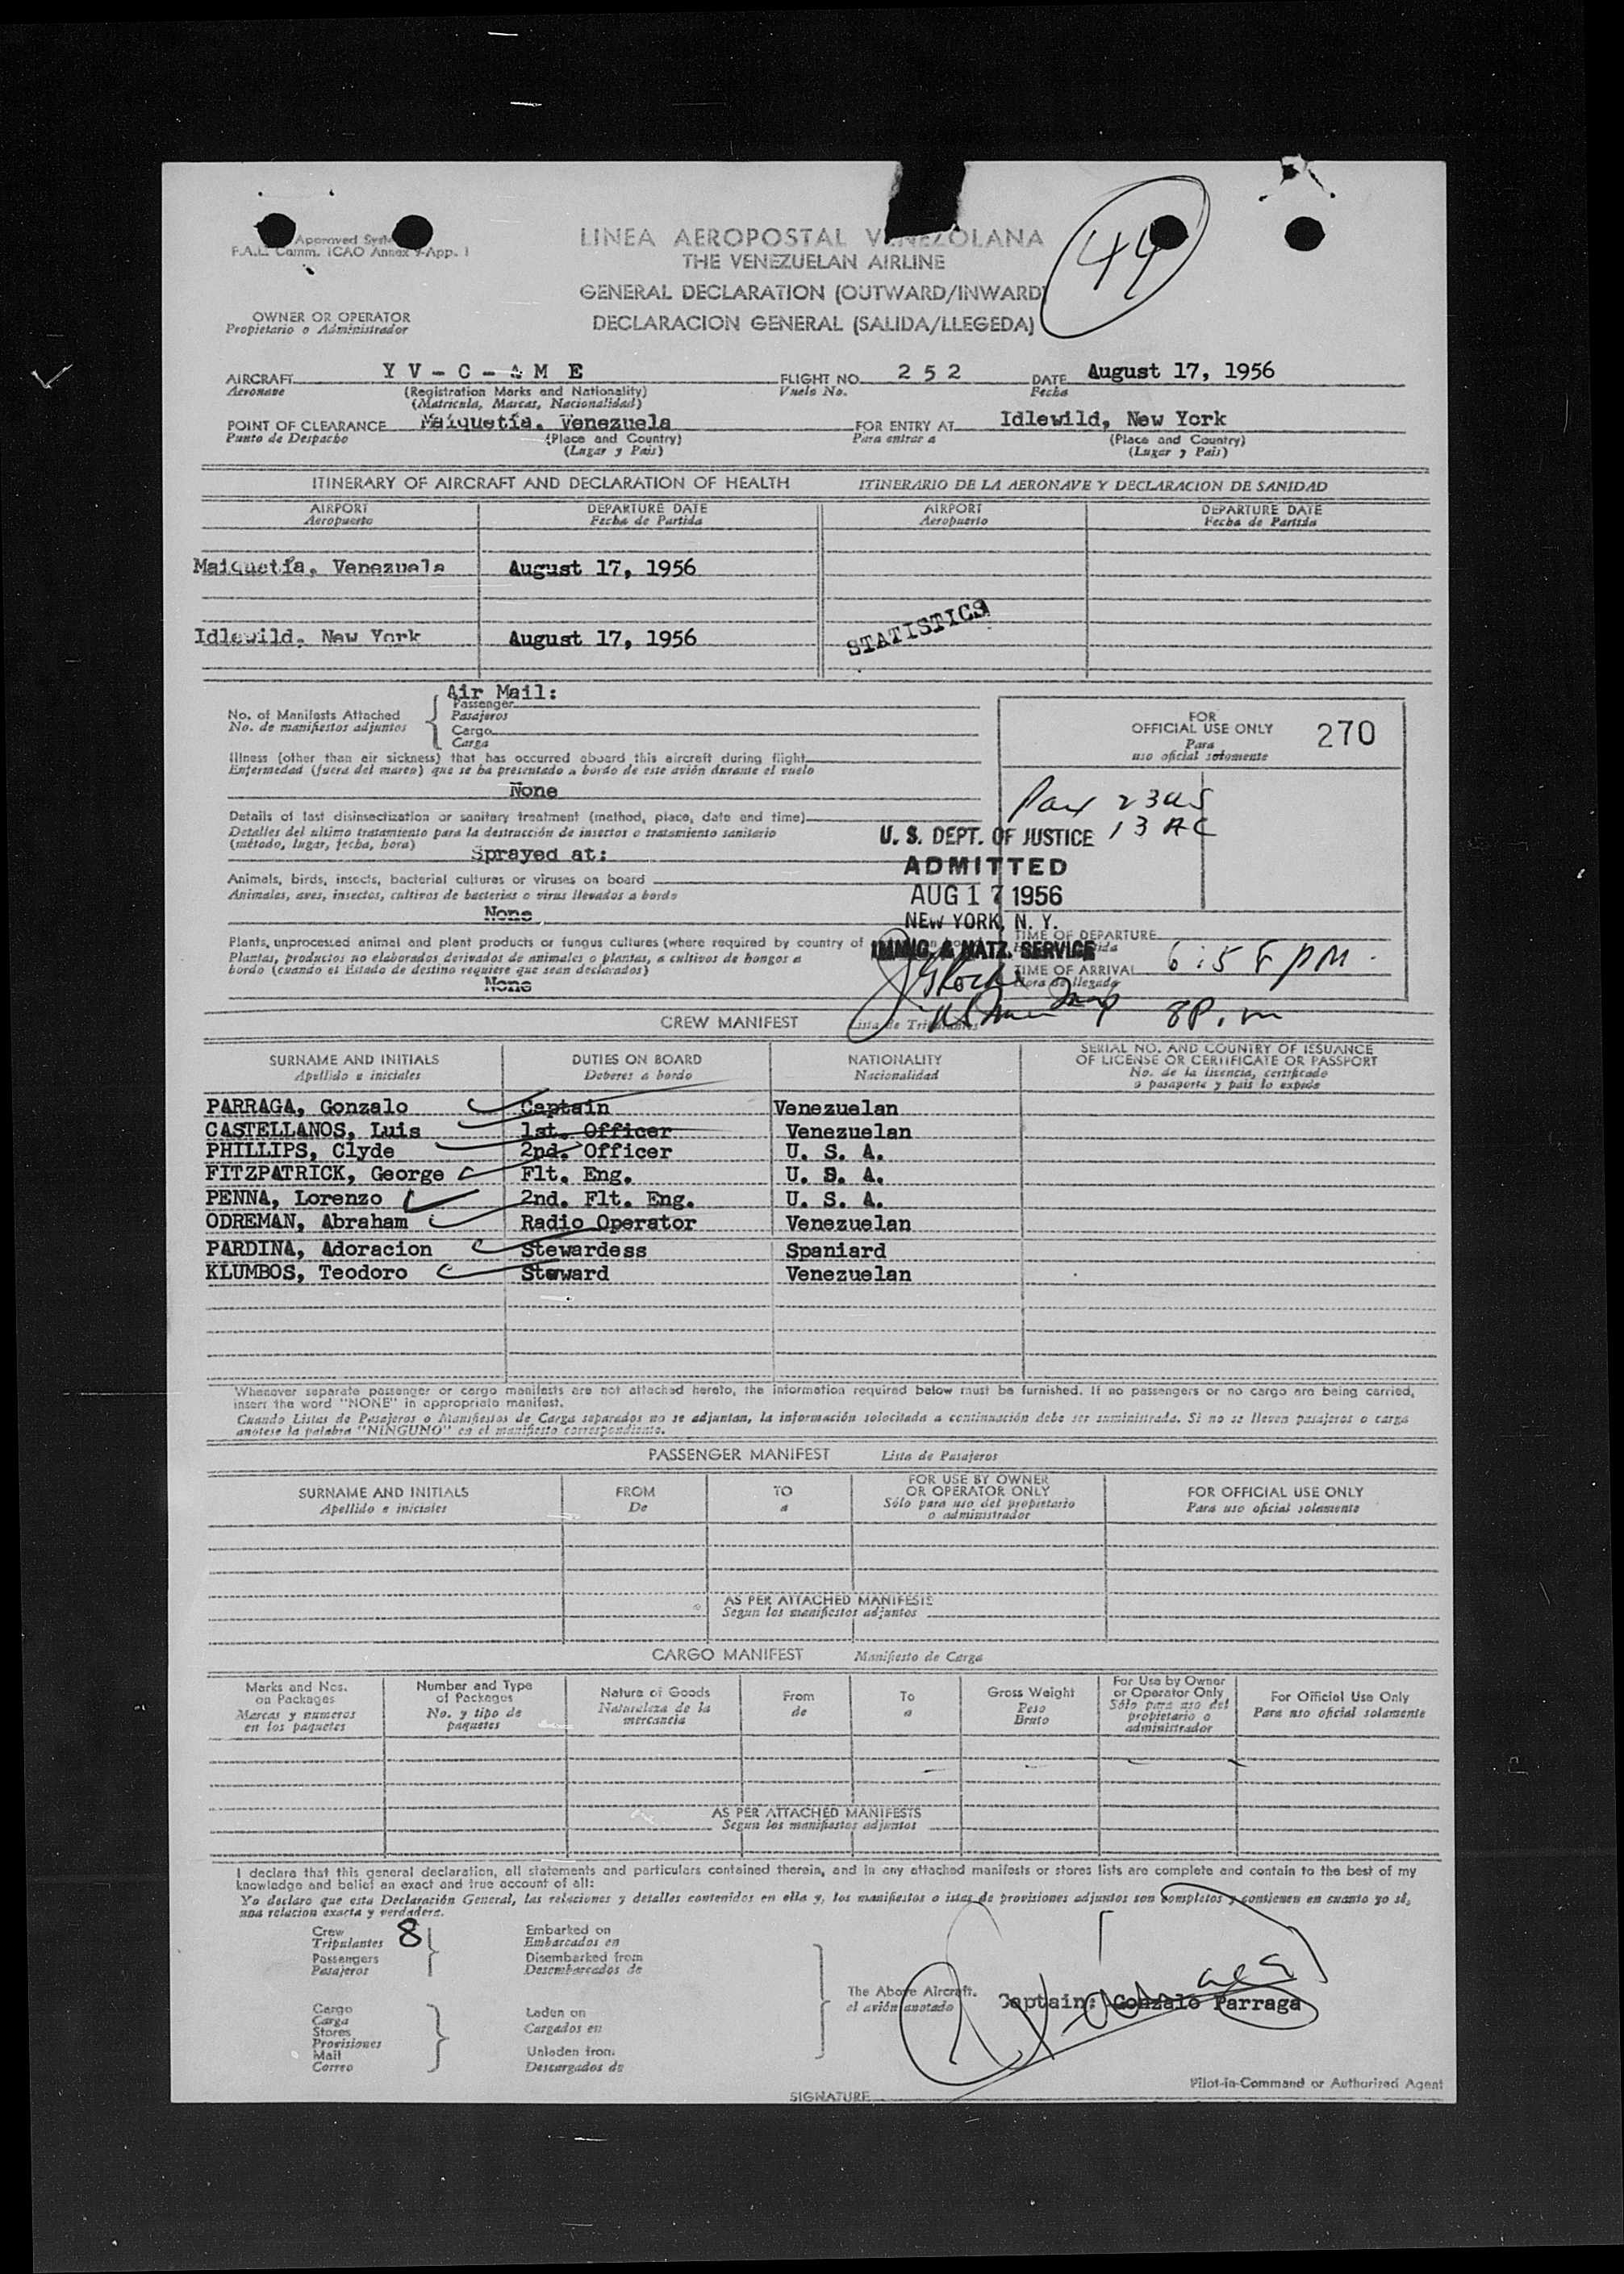 Approved System
F.A.L. Comm. ICAO Annex 9-App. I
44
LINEA AEROPOSTAL VENEZOLANA
THE VENEZUELAN AIRLINE
GENERAL DECLARATION (OUTWARD/INWARD)
DECLARACION GENERAL (SALIDA/LLEGEDA)
OWNER OR OPERATOR
Propietario o Administrador
AIRCRAFT YV-C-AME FLIGHT NO. 252 DATE August 17, 1956
Aeronave (Registration Marks and Nationality) Vuelo No. Fecha
(Matricula, Marcas, Nacionalidad)
POINT OF CLEARANCE Maiquetía, Venezuela FOR ENTRY AT Idlewild, New York
Punto de Despacho (Place and Country) Para entrar a (Place and Country)
(Lugar y Pais) (Lugar y Pais)
ITINERARY OF AIRCRAFT AND DECLARATION OF HEALTH ITINERARIO DE LA AERONAVE Y DECLARACION DE SANIDAD
AIRPORT DEPARTURE DATE AIRPORT DEPARTURE DATE
Aeropuerto Fecha de Partida Aeropuerto Fecha de Partida
Maiquetía, Venezuela August 17, 1956
Idlewild, New York August 17, 1956
STATISTICS
Air Mail:
No. of Manifests Attached Passenger
No. de manifiestos adjuntos Pasajeros
Cargo
Carga
FOR
OFFICIAL USE ONLY 270
Para
uso oficial solamente
Illness (other than air sickness) that has occurred aboard this aircraft during flight
Enfermedad (fuera del mareo) que se ha presentado a bordo de este avión durante el vuelo
None
Pax 23 US
13 AC
Details of last disinsectization or sanitary treatment (method, place, date and time)
Detalles del ultimo tratamiento para la destrucción de insectos o tratamiento sanitario
(método, lugar, fecha, hora)
Sprayed at:
U. S. DEPT. OF JUSTICE
ADMITTED
AUG 17 1956
NEW YORK, N. Y.
IMMIG. & NATZ. SERVICE
Animals, birds, insects, bacterial cultures or viruses on board
Animales, aves, insectos, cultivos de bacterias o virus llevados a bordo
None
Plants, unprocessed animal and plant products or fungus cultures (where required by country of
Plantas, productos no elaborados derivados de animales o plantas, a cultivos de hongos a
bordo (cuando el Estado de destino requiere que sean declarados)
None
TIME OF DEPARTURE
TIME OF ARRIVAL 6:55 PM.
Hora de llegada
8 P.m
CREW MANIFEST Lista de Tripulantes
SURNAME AND INITIALS DUTIES ON BOARD NATIONALITY SERIAL NO. AND COUNTRY OF ISSUANCE
OF LICENSE OR CERTIFICATE OR PASSPORT
Apellido e iniciales Deberes a bordo Nacionalidad No. de la licencia, certificado
o pasaporte y pais lo expide
PARRAGA, Gonzalo Captain Venezuelan
CASTELLANOS, Luis 1st. Officer Venezuelan
PHILLIPS, Clyde 2nd. Officer U. S. A.
FITZPATRICK, George Flt. Eng. U. S. A.
PENNA, Lorenzo 2nd. Flt. Eng. U. S. A.
ODREMAN, Abraham Radio Operator Venezuelan
PARDINA, Adoracion Stewardess Spaniard
KLUMBOS, Teodoro Steward Venezuelan
Whenever separate passenger or cargo manifests are not attached hereto, the information required below must be furnished. If no passengers or no cargo are being carried,
insert the word "NONE" in appropriate manifest.
Cuando Listas de Pasajeros o Manifiestos de Carga separados no se adjuntan, la información solocitada a continuación debe ser suministrada. Si no se lleven pasajeros o carga
anotese la palabra "NINGUNO" en el manifiesto correspondiente.
PASSENGER MANIFEST Lista de Pasajeros
SURNAME AND INITIALS FROM TO FOR USE BY OWNER FOR OFFICIAL USE ONLY
OR OPERATOR ONLY
Apellido e iniciales De a Sólo para uso del propietario Para uso oficial solamente
o administrador
AS PER ATTACHED MANIFESTS
Segun los manifiestos adjuntos
CARGO MANIFEST Manifiesto de Carga
Marks and Nos. Number and Type Nature of Goods From To Gross Weight For Use by Owner For Official Use Only
on Packages of Packages or Operator Only
Marcas y numeros No. y tipo de Naturaleza de la de a Peso Sólo para uso del Para uso oficial solamente
en los paquetes paquetes mercancia Bruto propietario o
administrador
AS PER ATTACHED MANIFESTS
Segun los manifiestos adjuntos
I declare that this general declaration, all statements and particulars contained therein, and in any attached manifests or stores lists are complete and contain to the best of my
knowledge and belief an exact and true account of all:
Yo declaro que esta Declaración General, las relaciones y detalles contenidos en ella y, los manifiestos o istas de provisiones adjuntos son completos y contienen en cuanto yo sé,
una relacion exacta y verdadera.
Crew 8 Embarked on
Tripulantes Embarcados en
Passengers Disembarked from
Pasajeros Desembarcados de
The Above Aircraft. Captain: Gonzalo Parraga
el avión anotado
Cargo Laden on
Carga Cargados en
Stores
Provisiones Unladen from
Mail Descargados de
Correo
Pilot-in-Command or Authorized Agent
SIGNATURE